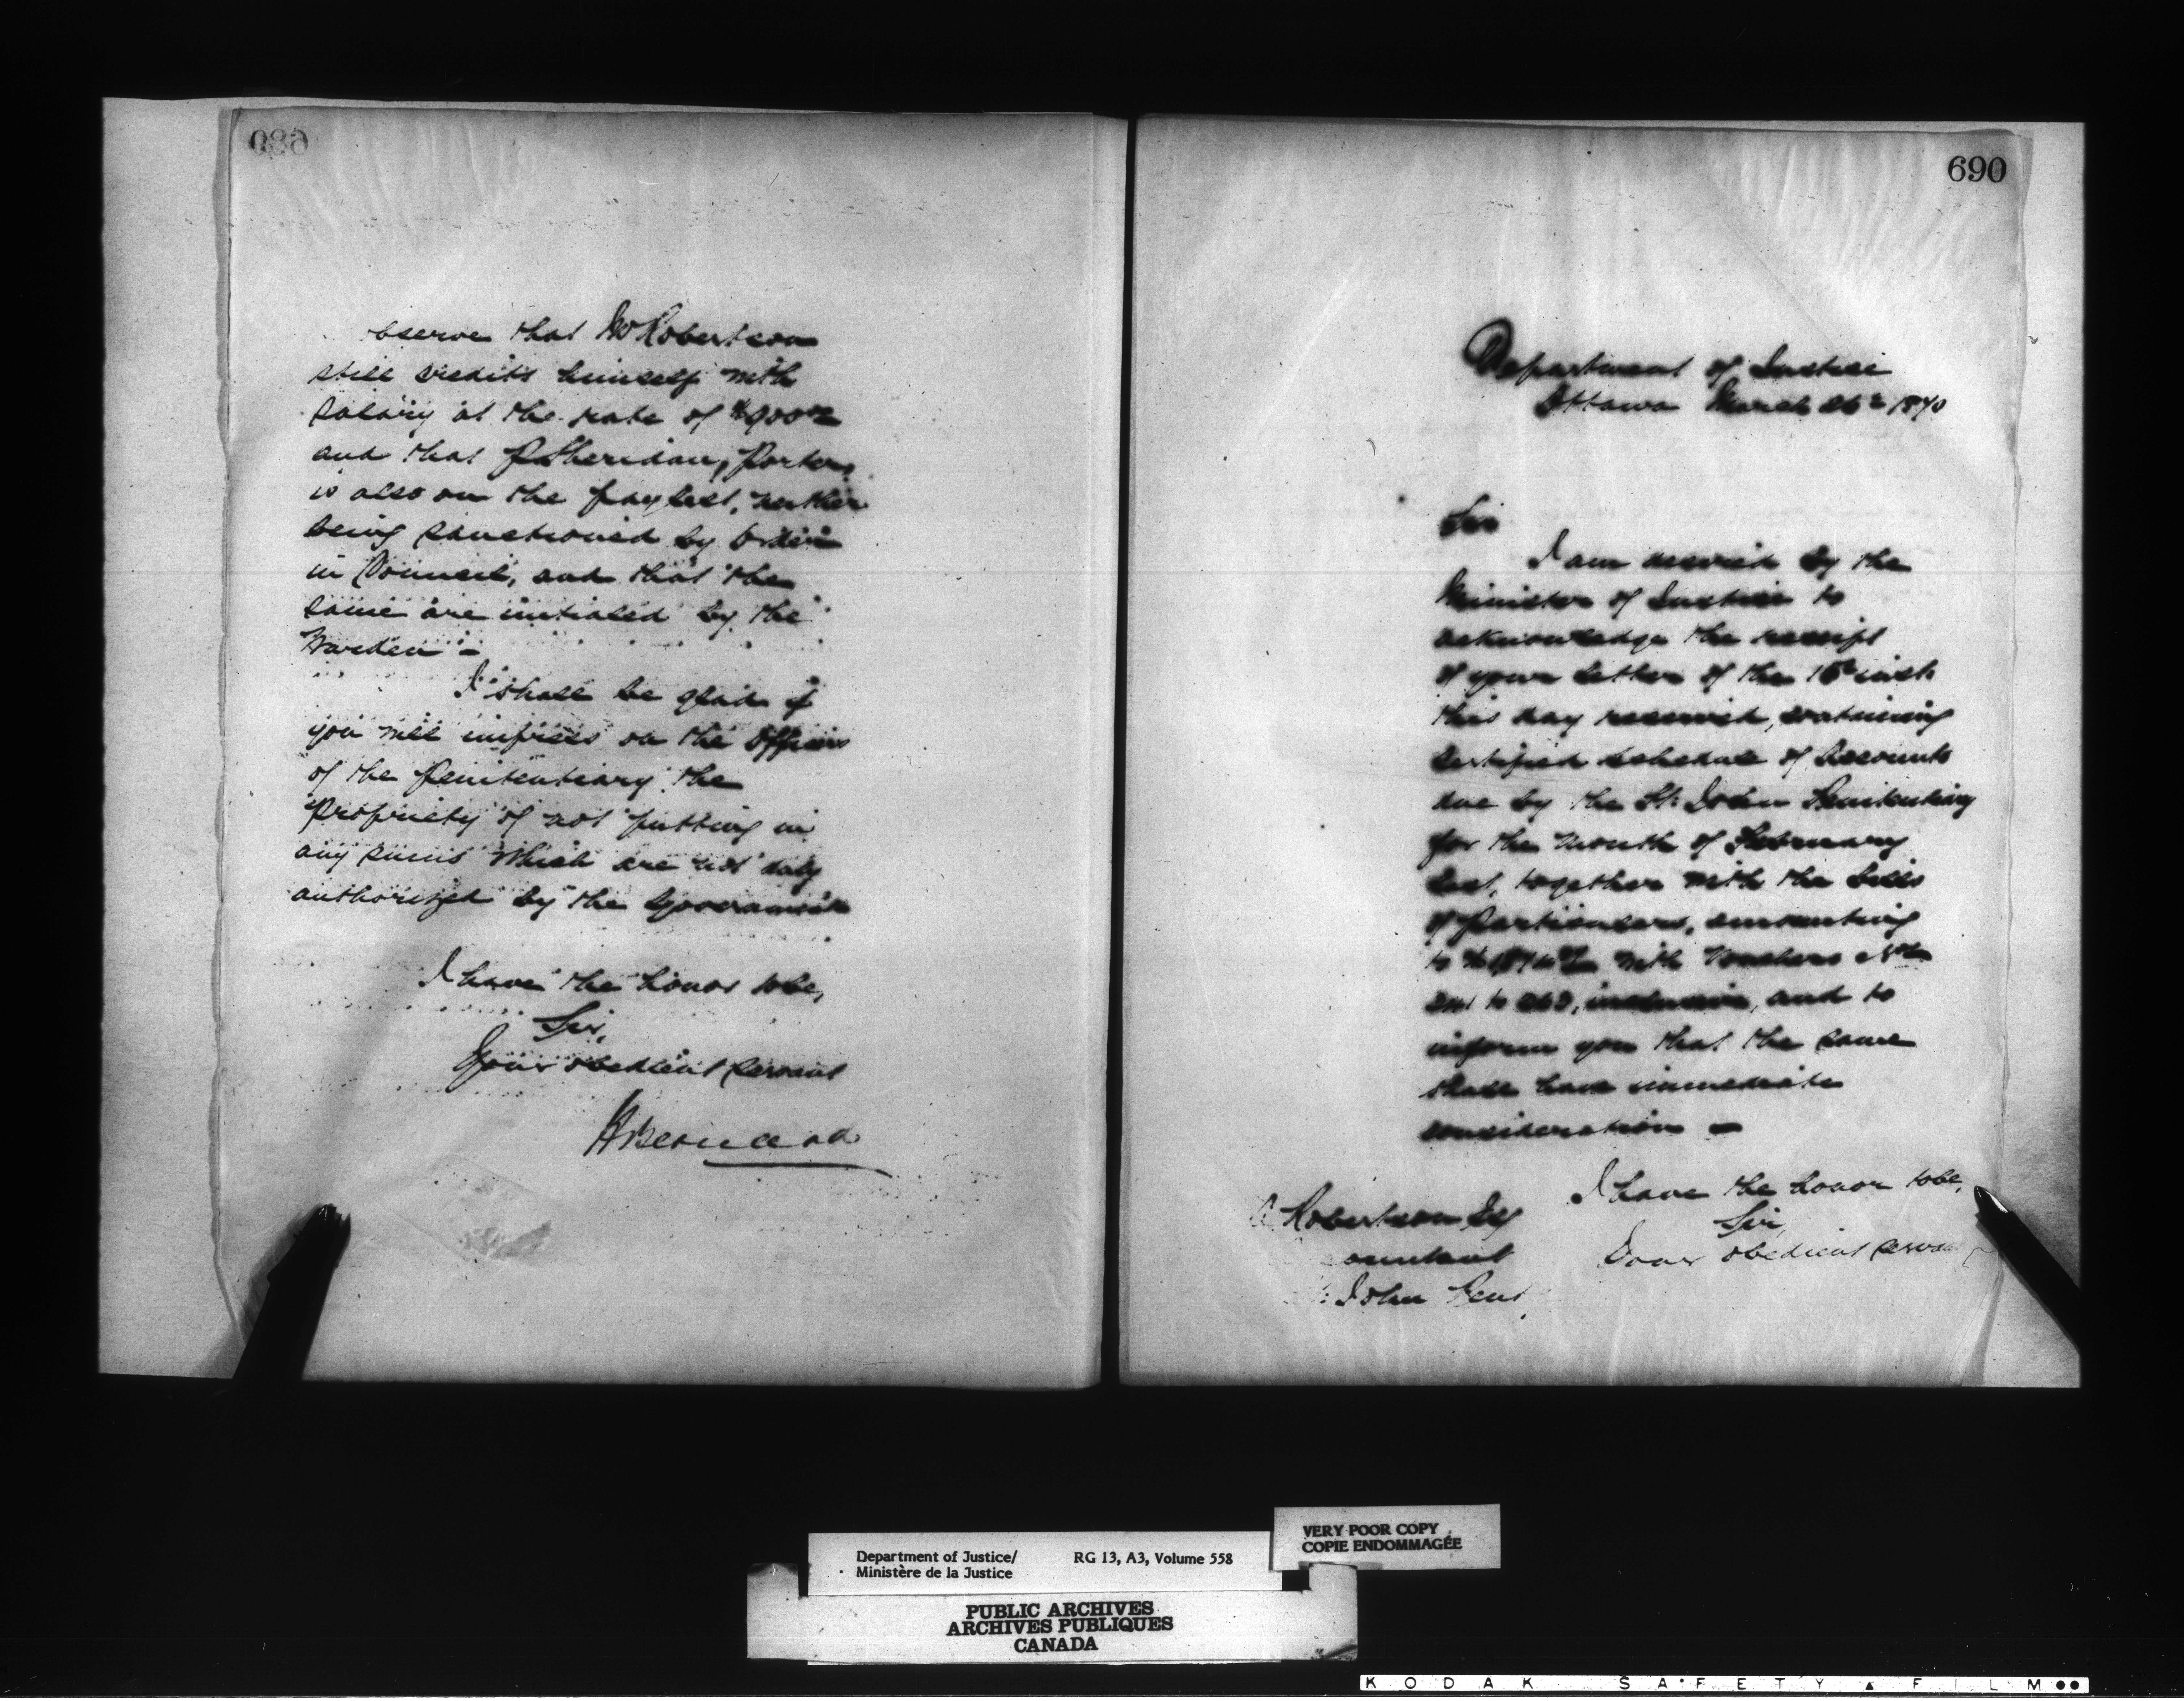 observe that Mr Robertson
still credits himself with
salary at the rate of $900
and that P. Sheridan, Porter,
is also on the pay list, neither
being sanctioned by Order
in Council, and that the
same are initialed by the
Warden -
I shall be glad if
you will impress on the Officers
of the Penitentiary the
propriety of not putting in
any sums which are not duly
authorized by the Government
I have the honor to be,
Sir,
Your obedient servant
H Bernard
690
Department of Justice
Ottawa March 26th 1870
Sir
I am desired by the
Minister of Justice to
acknowledge the receipt
of your letter of the inst.
this day received, containing
certified schedule of Accounts
due by the St. John Penitentiary
for the month of February
last, together with the bills
of particulars, amounting
to with vouchers Nos
to inclusive, and to
inform you that the same
shall have immediate
consideration -
I have the honor to be,
Sir,
Your obedient
Robertson Esq
John Pent.
Department of Justice/
Ministère de la Justice
RG 13, A3, Volume 558
VERY POOR COPY
COPIE ENDOMMAGÉE
PUBLIC ARCHIVES
ARCHIVES PUBLIQUES
CANADA
KODAK SAFETY FILM